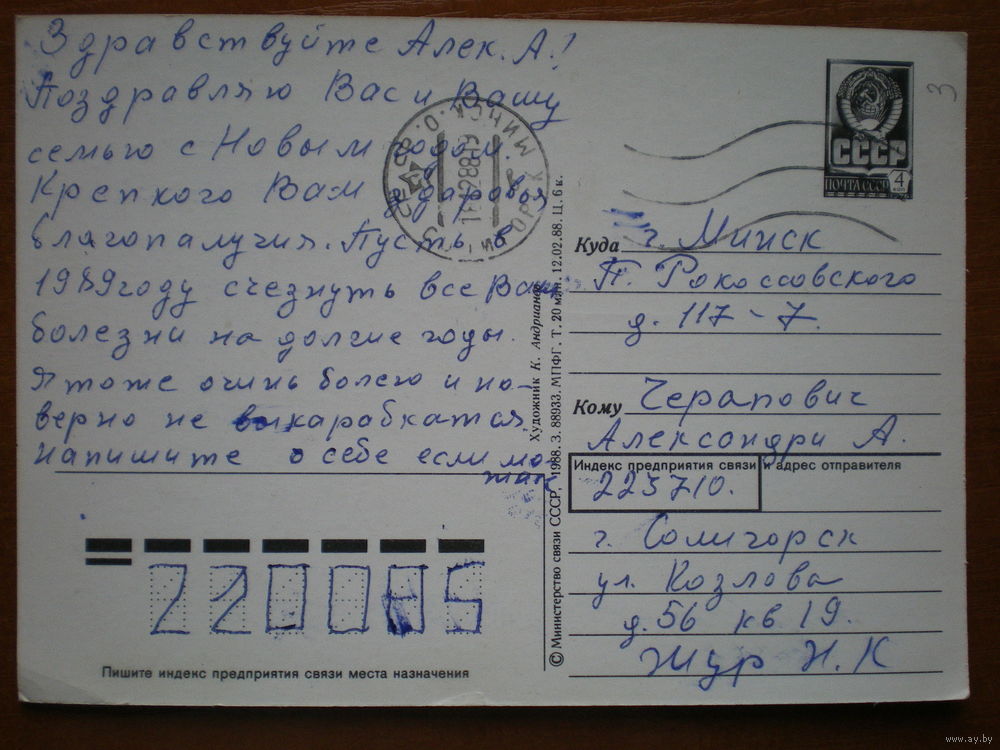 Здравствуйте Алек. А!
Поздравляю Вас и Вашу
семью с Новым годом.
Крепкого Вам здоровья
благопалучия. Пусть в
1989 году счезнуть все Ваши
болезни на долгие годы.
Я тоже очинь болею и на-
верно не выкарабкатся.
Напишите о себе если мо-
СССР
ПОЧТА СССР
4
3
МИНСК
Куда г. Минск
П. Рокоссовского
д. 117-7.
Кому Черапович
Александри А.
Индекс предприятия связи и адрес отправителя
223710.
г. Солигорск
ул. Козлова
д. 56 кв 19.
Жур Н. К
© Министерство связи СССР, 1988. З. 88933. МПФГ. Т. 20 млн. 12.02.88. Ц. 6 к.
Художник К. Андрианов
220085
Пишите индекс предприятия связи места назначения
www.ay.by